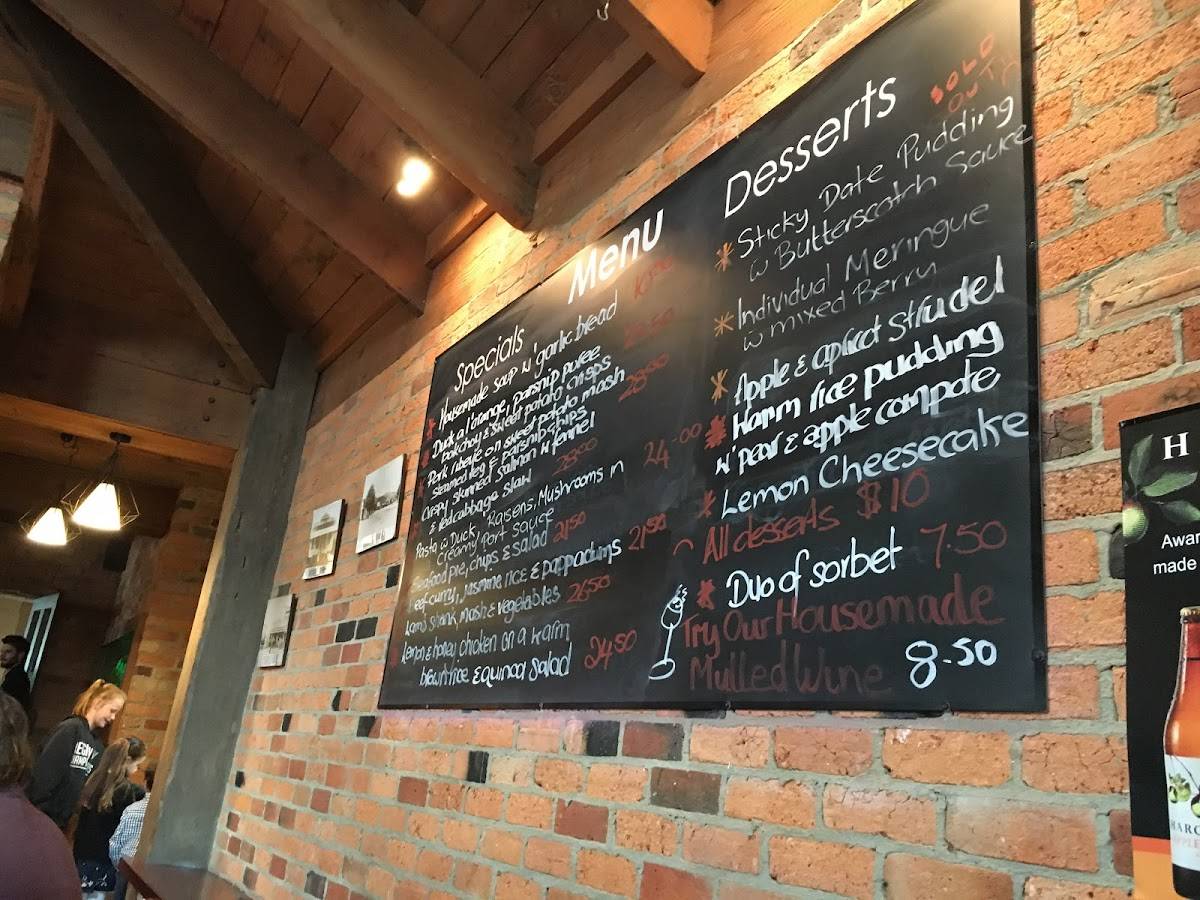 Menu
Specials
Housemade soup w' garlic bread
Duck a l'orange, parsnip puree
bokchoy & sweet potato crisps
Pork ribeye on sweet potato mash
steamed veg & parsnip chips 28.00
Crispy skinned salmon w fennel
& red cabbage slaw 28.00
Pasta w Duck, Raisens, Mushrooms in
Creamy Port Sauce 24.00
Seafood pie, chips & salad 21.50
Beef curry, jasmine rice & pappadums 21.50
Lamb shank, mash & vegetables 26.50
Lemon & honey chicken on a warm
brown rice & quinoa salad 24.50
Desserts
SOLD
OUT
Sticky Date Pudding
w Butterscotch Sauce
Individual Meringue
w mixed Berry
Apple & apricot strudel
Warm rice pudding
w' pear & apple compote
Lemon Cheesecake
All desserts $10
Duo of sorbet 7.50
Try Our Housemade
Mulled Wine 8.50
H
Awar
made